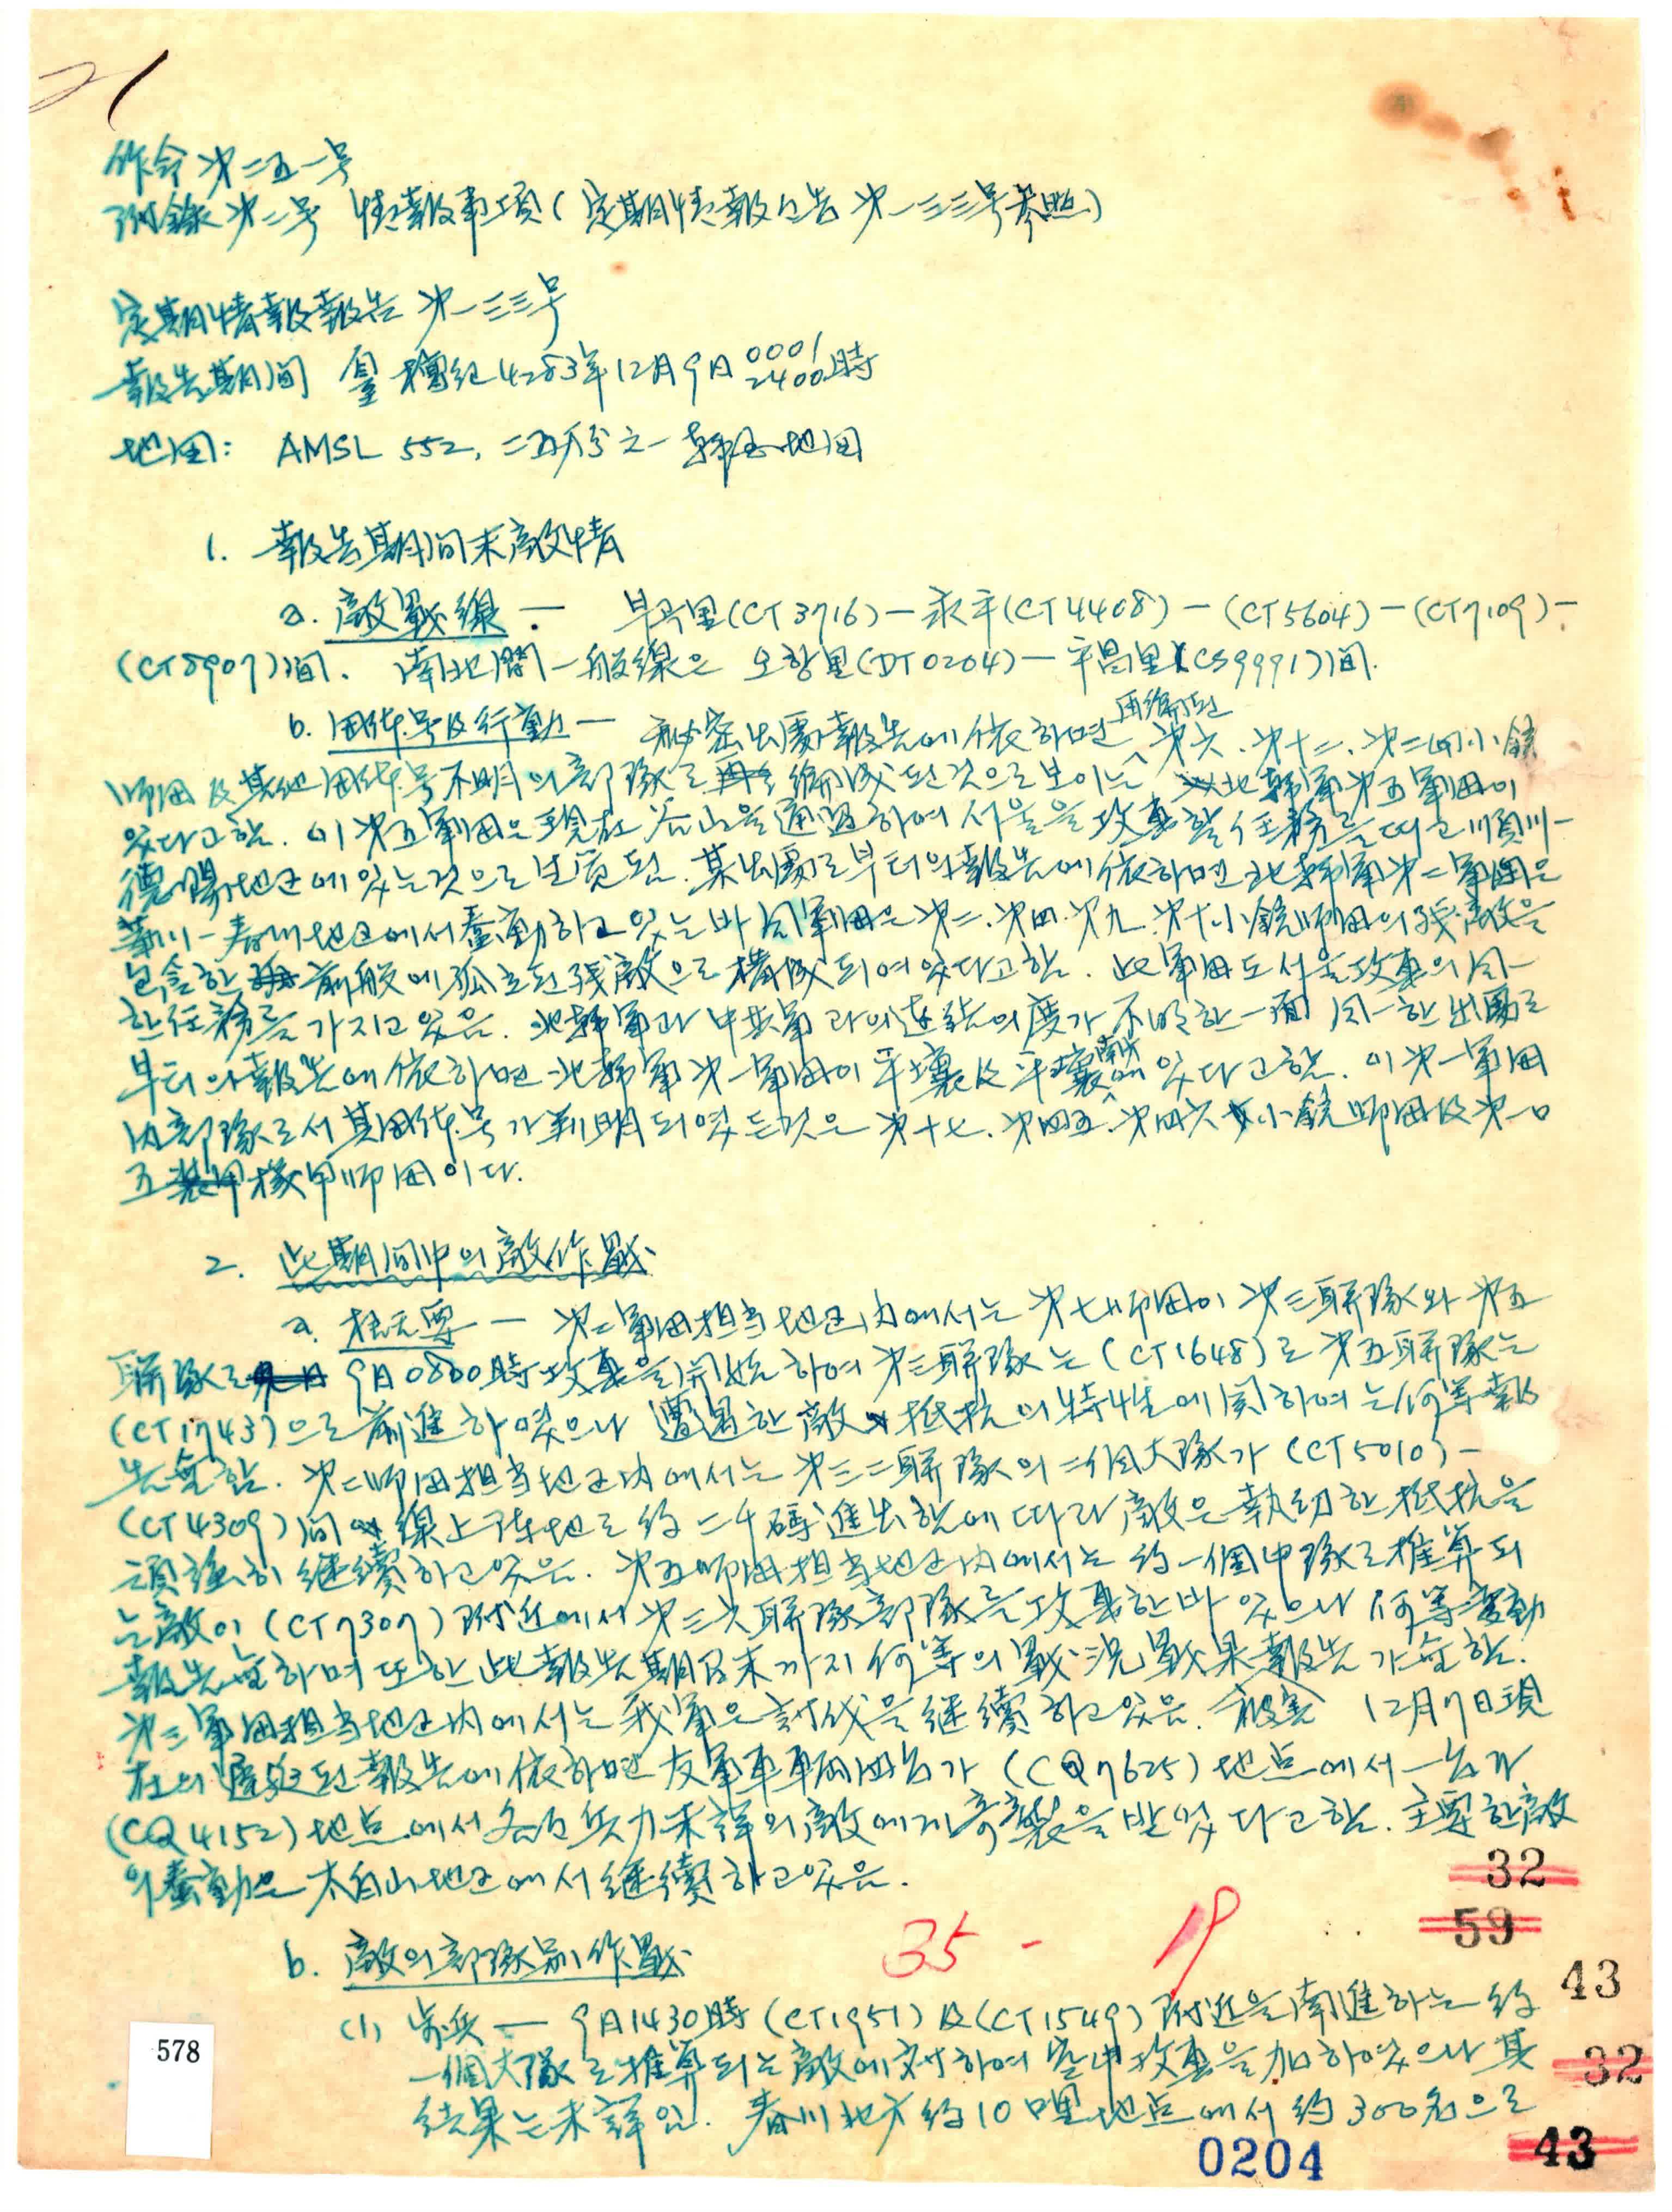 21
作命 第二五一号
附錄 第二号 情報事項(定期情報報告 第一三三号參照)
定期情報報告 第一三三号
報告期间 自至 檀紀4283年12月9日 0001 2400時
地図: AMSL 552, 二五万分之一 韓国地図
1. 報告期间末敵情
a. 敵戰線 — 부곡里(CT3716)—永平(CT4408)—(CT5604)—(CT7109)—
(CT8907)间. 南北間一般線은 오항里(DT0204)—平昌里(CS9991)间.
b. 団体号及行動 — 秘密出處報告에 依하면 再編된 第六. 第十二. 第二四小銃
師団 及 其他 団体号不明의 部隊로 編成된 것으로 보이는 北韓軍第五軍団이
있다고 함. 이 第五軍団은 現在 谷山을 通過하여 서울을 攻擊할 任務를 띠고 順川—
德陽地区에 있는것으로 보임. 某出處로부터의 報告에 依하면 北韓軍第二軍団은
華川—春川地区에서 蠢動하고 있는 바 同軍団은 第二. 第四. 第九. 第十小銃師団의 残敵을
包含한 前般에 孤立된 残敵으로 構成되여 있다고함. 此軍団도 서울攻擊의 同一
한 任務를 가지고 있음. 北韓軍과 中共軍과의 連絡의 度가 不明한 一面 同一한 出處로
부터의 報告에 依하면 北韓軍第一軍団이 平壤及平壤南方에 있다고함. 이 第一軍団
内 部隊로서 其団体号가 判明되였든것은 第十七. 第四五. 第四六小銃師団及第一〇
五機甲師団이다.
2. 此期间中의 敵作戰
a. 槪要 — 第二軍団担当地区内에서는 第七師団이 第三聯隊와 第五
聯隊로 9日0800時 攻擊을 開始하여 第三聯隊는 (CT1648)로 第五聯隊는
(CT1743)으로 前進하였으나 遭遇한 敵抵抗의 特性에 関하여는 何等 報
告無함. 第二師団担当地区内에서는 第三二聯隊의 二個大隊가 (CT5010)—
(CT4309)间 線上陣地로 約 二千碼進出함에 따라 敵은 執拗한 抵抗을
頑强히 継續하고있음. 第五師団担当地区内에서는 約一個中隊로 推算되
는敵이 (CT7307) 附近에서 第三六聯隊部隊를 攻擊한바 있으나 何等変動
報告無하며 또한 此報告期间末까지 何等의 戰況 戰果 報告가無함.
第三軍団担当地区内에서는 我軍은 討伐을 継續하고있음. 被害 12月7日現
在의 遲延된 報告에 依하면 友軍車輛四台가 (CQ7625) 地点에서 一台가
(CQ4152)地点에서 各各 兵力未詳의 敵에게 奇襲을 받었다고함. 主要한敵
의蠢動은 太白山地区에서 継續하고있음.
b. 敵의部隊別作戰
(1) 步兵 — 9日1430時 (CT1951) 及(CT1549) 附近을 南進하는 約
一個大隊로 推算되는 敵에 対하여 空中攻擊을 加하였으나 其
結果는 未詳임. 春川北方 約10哩地点에서 約 300名으로
35 - 19
32
59
43
32
43
578
0204